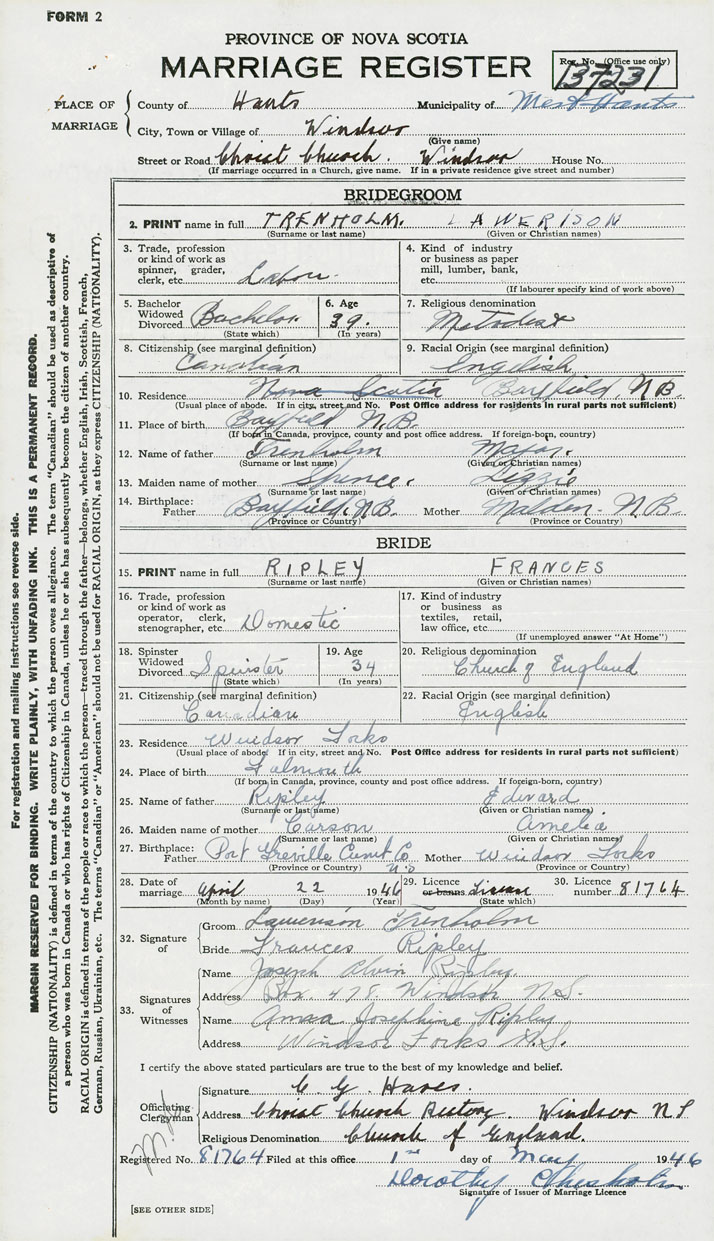 FORM 2
PROVINCE OF NOVA SCOTIA
MARRIAGE REGISTER
Reg. No. (Office use only)
137231
PLACE OF MARRIAGE
County of Hants Municipality of West Hants
City, Town or Village of Windsor
(Give name)
Street or Road Christ Church. Windsor House No.
(If marriage occurred in a Church, give name. If in a private residence give street and number)
BRIDEGROOM
2. PRINT name in full TRENHOLM. LAWERISON
(Surname or last name) (Given or Christian names)
3. Trade, profession or kind of work as spinner, grader, clerk, etc. Labor.
4. Kind of industry or business as paper mill, lumber, bank, etc.
(If labourer specify kind of work above)
5. Bachelor Widowed Divorced Bachelor
(State which)
6. Age 39.
(In years)
7. Religious denomination
Metodest
8. Citizenship (see marginal definition)
Canadian
9. Racial Origin (see marginal definition)
English
10. Residence Nova Scotia Bayfield, N B
(Usual place of abode. If in city, street and No. Post Office address for residents in rural parts not sufficient)
11. Place of birth Bayfield N.B.
(If born in Canada, province, county and post office address. If foreign-born, country)
12. Name of father Trenholm Major.
(Surname or last name) (Given or Christian names)
13. Maiden name of mother Spence. Lizzie
(Surname or last name) (Given or Christian names)
14. Birthplace: Father Bayfield, N.B. Mother Malden. N.B.
(Province or Country) (Province or Country)
BRIDE
15. PRINT name in full RIPLEY FRANCES
(Surname or last name) (Given or Christian names)
16. Trade, profession or kind of work as operator, clerk, stenographer, etc. Domestic
17. Kind of industry or business as textiles, retail, law office, etc.
(If unemployed answer "At Home")
18. Spinster Widowed Divorced Spinster
(State which)
19. Age 34
(In years)
20. Religious denomination
Church of England
21. Citizenship (see marginal definition)
Canadian
22. Racial Origin (see marginal definition)
English
23. Residence Windsor Forks
(Usual place of abode. If in city, street and No. Post Office address for residents in rural parts not sufficient)
24. Place of birth Falmouth
(If born in Canada, province, county and post office address. If foreign-born, country)
25. Name of father Ripley Edward
(Surname or last name) (Given or Christian names)
26. Maiden name of mother Carson Amelia
(Surname or last name) (Given or Christian names)
27. Birthplace: Father Port Greville Cumb Co N.S Mother Windsor Forks
(Province or Country) (Province or Country)
28. Date of marriage April 22 1946
(Month by name) (Day) (Year)
29. Licence or banns
(State which)
30. Licence number 81764
32. Signature of
Groom Lawerison Trenholm
Bride Frances Ripley
33. Signatures of Witnesses
Name Joseph Alvin Ripley.
Address Box 478 Windsor N.S.
Name Josephine Ripley
Address Windsor Forks N.S.
I certify the above stated particulars are true to the best of my knowledge and belief.
Officiating Clergyman
Signature C. G.
Address Christ Church Rectory. Windsor N S
Religious Denomination Church of England.
Registered No. 81764 Filed at this office 1st day of May 1946
Dorothy Chisholm
Signature of Issuer of Marriage Licence
[SEE OTHER SIDE]
For registration and mailing instructions see reverse side.
MARGIN RESERVED FOR BINDING. WRITE PLAINLY, WITH UNFADING INK. THIS IS A PERMANENT RECORD.
CITIZENSHIP (NATIONALITY) is defined in terms of the country to which the person owes allegiance. The term "Canadian" should be used as descriptive of
a person who was born in Canada or who has rights of Citizenship in Canada, unless he or she has subsequently become the citizen of another country.
RACIAL ORIGIN is defined in terms of the people or race to which the person—traced through the father—belongs, whether English, Irish, Scottish, French,
German, Russian, Ukrainian, etc. The terms "Canadian" or "American" should not be used for RACIAL ORIGIN, as they express CITIZENSHIP (NATIONALITY).